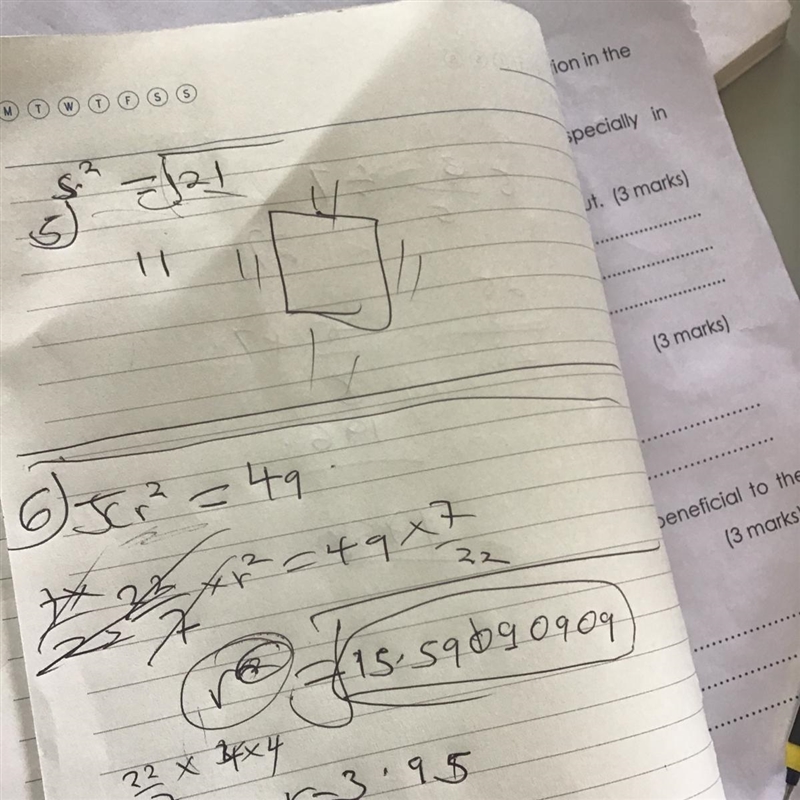 M T W T F S S
5) s² = √121
11
11
11
11
11
6) πr² = 49
7x/22 22/7 × r² = 49 × 7/22
r² = √15.59090909
22/7 × 4 × 4
r = 3.95
ion in the
specially in
ut. (3 marks)
(3 marks)
beneficial to the
(3 marks)